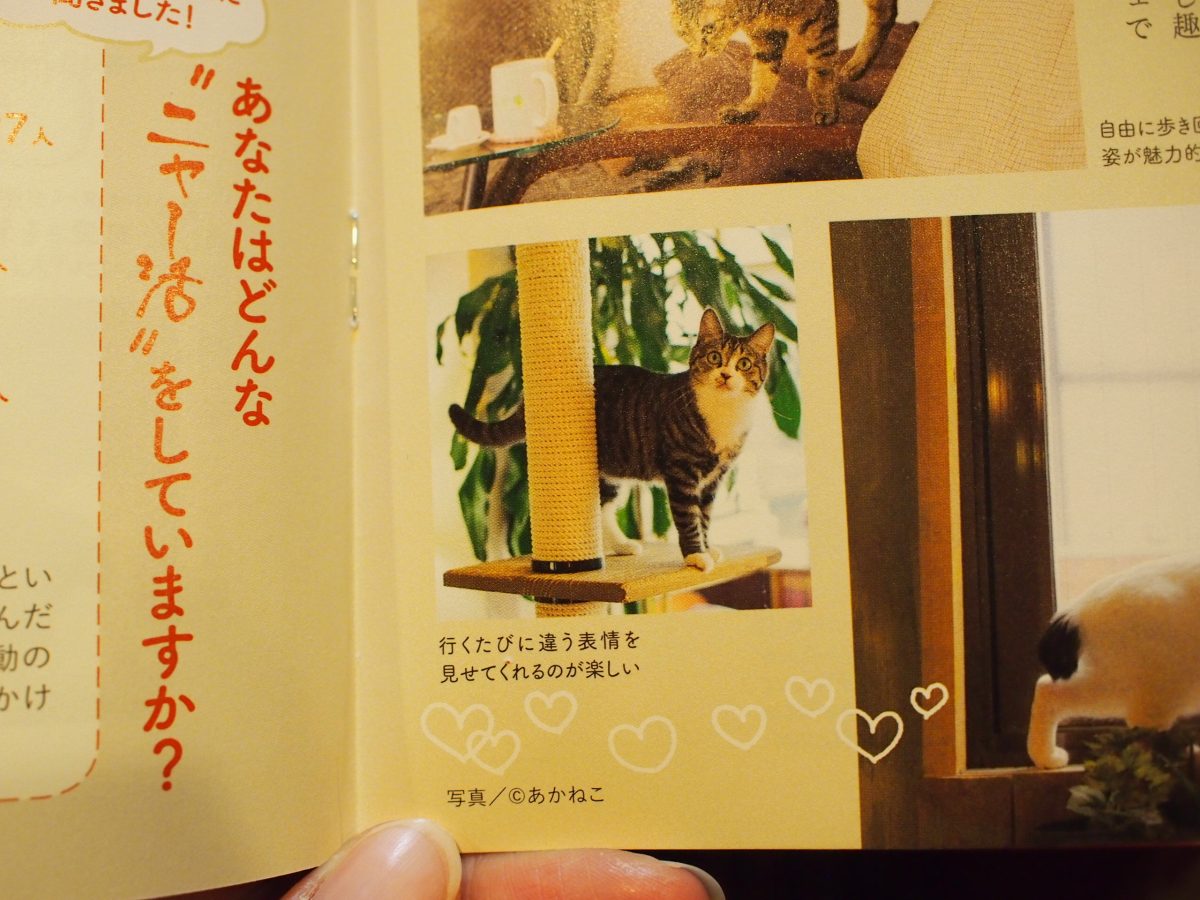 聞きました！
7人
あなたはどんな
"ニャー活"をしていますか？
とい
んだ
動の
かけ
で
趣
自由に歩き回
姿が魅力的
行くたびに違う表情を
見せてくれるのが楽しい
写真／©あかねこ